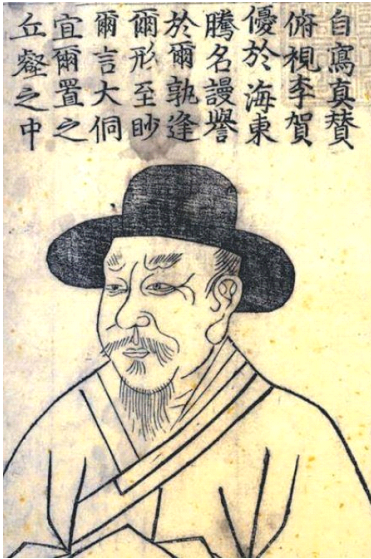 自寫真贊
俯視李賀
優於海東
騰名謾譽
於爾孰逢
爾形至眇
爾言大侗
宜爾置之
丘壑之中